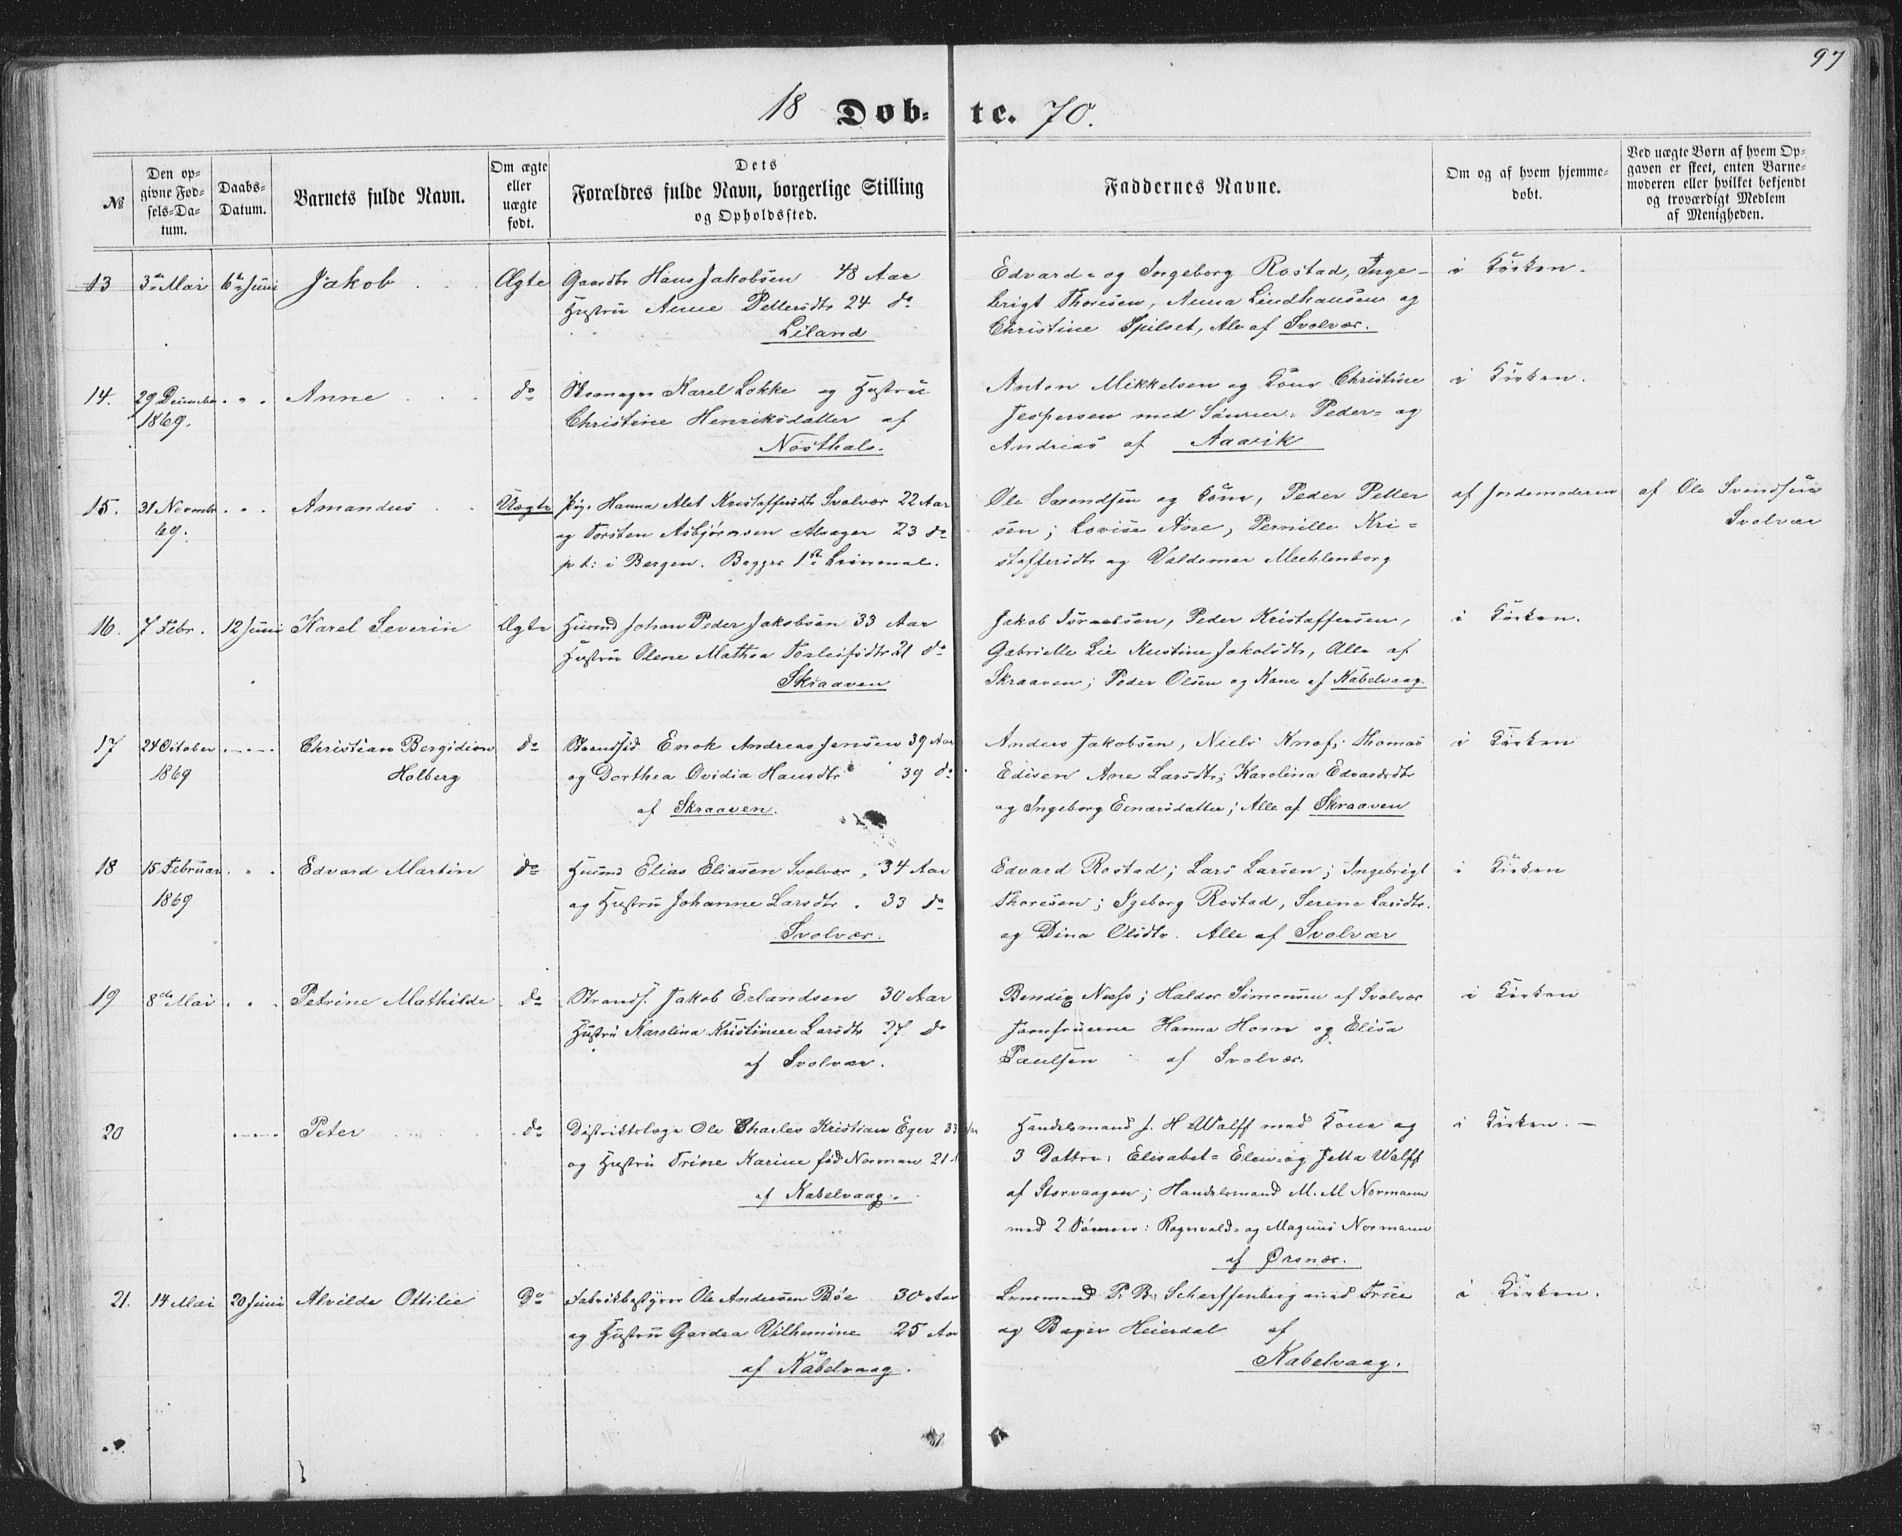 97
18 Döb-te. 70.
№
Den op-
givne Fød-
sels-Da-
tum.
Daabs-
Datum.
Barnets fulde Navn.
Om ægte
eller
uægte
født.
Dets
Forældres fulde Navn, borgerlige Stilling
og Opholdssted.
Faddernes Navne.
Om og af hvem hjemme-
døbt.
Ved uægte Børn af hvem Op-
gaven er skeet, enten Barne-
moderen eller hvilket bekjendt
og troværdigt Medlem
af Menigheden.
13 3de Mai 6te Juni Jakob Ægte Gaardbr Hans Jakobsen 48 Aar Edvard- og Ingeborg Rostad, Inge- i Kirken.
Hustru Anne Pettersdtr 24 do brigt Thoresen, Anna Lindhausen og
Liland Christine Spilset, Alv af Svolvær.
14. 29 December " " Anne do Karel Løkke og Hustru Anton Mikkelsen og Kone Christine i Kirken.
1869. Christine Henriksdatter af Jespersen med Sønner: Peder- og
Nøsthals. Andreas af Aavik
15. 31 Novembr " " Amandus Uægte Pige Hanna Alet Kristoffersdtr Svolvær 22 Aar Ole Svendsen og Kone, Peder Petter af Jordemoderen af Ole Svendsen
69. og Torsten Asbjørnsen 23 do sen; Lovise Aae, Pernille Kri- Svolvær
pt: i Bergen. Begges 1ste Leiermaal. stoffersdtr og Valdemar Mechlenborg
16. 7 Febr. 12 Juni Karel Severin Ægte Husmd Johan Peder Jakobsen 33 Aar Jakob Peder Kristoffersen, i Kirken.
Hustru Olene Mathea Torleifsdtr 21 do Gabrielle Lie Kristine Jakobsdtr, Alle af
Skraaven Skraaven; Peder Olsen og Kone af Kabelvaag.
17 24 October Christian Bergidion do Strandsid Enok Andreas Jensen 39 Aar Anders Jakobsen, Niels Knof; Thomas i Kirken
1869 Holberg og Dorthea Ovidia Hansdtr 39 do Edisen Ane Larsdtr; Karolina Edvardsdtr
af Skraaven. og Ingeborg Einarsdatter; Alle af Skraaven
18 15 Februar " " Edvard Martin do Husmd Elias Eliasen Svolvær 34 Aar Edvard Rostad; Lars Larsen; Ingebrigt i Kirken
1869 og Hustru Johanne Larsdtr. 33 do Thoresen; Igeborg Rostad, Serene Larsdtr.
Svolvær. og Dina Olsdtr. Alle af Svolvær
19 8de Mai " " Petrine Mathilde do Strands. Jakob Erlandsen 30 Aar Bendix Næss; Haldor Simonsen af Svolvær i Kirken
Hustru Karolina Kristinee Larsdtr 27 do Jomfruerne Hanna Horn og Elisa
af Svolvær. Paulsen af Svolvær.
20 Peter do Distriktslæge Ole Charles Kristian Eger 33 Aar Handelsmand J. H. Wolff med Kone og i Kirken. –
og Hustru Trine Karine fød Norman 21 3 Døttre: Elisabet- Elen- og Jetta Wolff
af Kabelvaag. af Storvaagen; Handelsmand M. M Normann
med 2 Sønner: Rognvald- og Magnus Normann
af Ørsnæs.
21. 14 Mai 20 Juni Alvilde Ottilie Do Fabrikbestyrer Ole Andersen Bøe 30 Aar Lensmand P. B. Scherffenberg med Frue i Kirken.
og Hustru Gardea Vilhemine 25 Aar og Bager Heierdal af
af Kabelvaag. Kabelvaag.